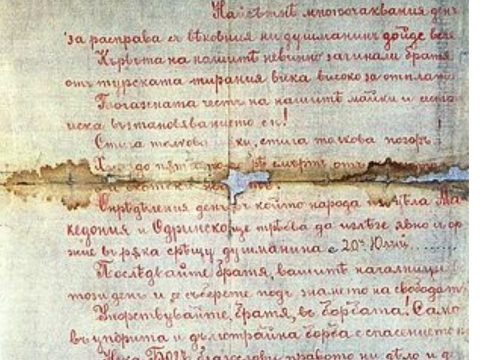 Найсѣтнѣ многоочаквания день
за расправа съ вѣковния ни душманинъ дойде вече
Кръвьта на нашитѣ невинно загинали братя
отъ турската тирания вика високо за отплата
Погазената честь на нашитѣ майки и сестри
иска възтановяванието си!
Стига толкова мѫки, стига толкова позоръ!
до пѫти смърть отъ
скотски
Опрѣдѣления день, въ който народа изъ цѣла Ма-
кедония и Одринско ще трѣбва да излѣзе явно и орѫ
жие въ рѫка срѣщу душманина е 20й Юлий.......
Послѣдвайте, братя, вашитѣ началници
този день и се съберете подъ знамето на свободата
Упорствувайте, братя, въ борбата! Само
въ упорита и дълготрайна борба е спасението н
Нека Богъ благослови правото ни дѣло и д